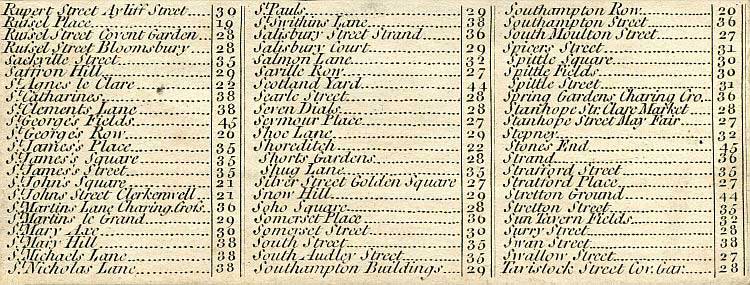 Rupert Street Ayliff Street 30
Russel Place 19
Russel Street Covent Garden 28
Russel Street Bloomsbury 28
Sackville Street 35
Saffron Hill 29
St. Agnes le Clare 22
St. Catharines 38
St. Clements Lane 38
St. George's Fields 45
St. George's Row 20
St. James's Place 35
St. James's Square 35
St. James's Street 35
St. John's Square 21
St. Johns Street Clerkenwell 21
St. Martins Lane Charing Crofs 36
St. Martins le Grand 29
St. Mary Axe 30
St. Mary Hill 38
St. Michaels Lane 38
St. Nicholas Lane 38
St. Pauls 29
St. Swithins Lane 38
Salisbury Street Strand 36
Salisbury Court 29
Salmon Lane 32
Saville Row 27
Scotland Yard 44
Searle Street 28
Seven Dials 28
Seymour Place 27
Shoe Lane 29
Shoreditch 22
Shorts Gardens 28
Shug Lane 35
Silver Street Golden Square 27
Snow Hill 29
Soho Square 28
Somerset Place 36
Somerset Street 30
South Street 35
South Audley Street 35
Southampton Buildings 29
Southampton Row 20
Southampton Street 36
South Moulton Street 27
Spicers Street 31
Spittle Square 30
Spittle Fields 30
Spittle Street 31
Spring Gardens Charing Cro. 36
Stanhope Str. Clare Market 28
Stanhope Street May Fair 27
Stepney 32
Stone's End 45
Strand 36
Strafford Street 35
Stratford Place 27
Stretton Ground 44
Stretton Street 35
Sun Tavern Fields 32
Surry Street 28
Swan Street 38
Swallow Street 27
Tavistock Street Cov. Gar. 28